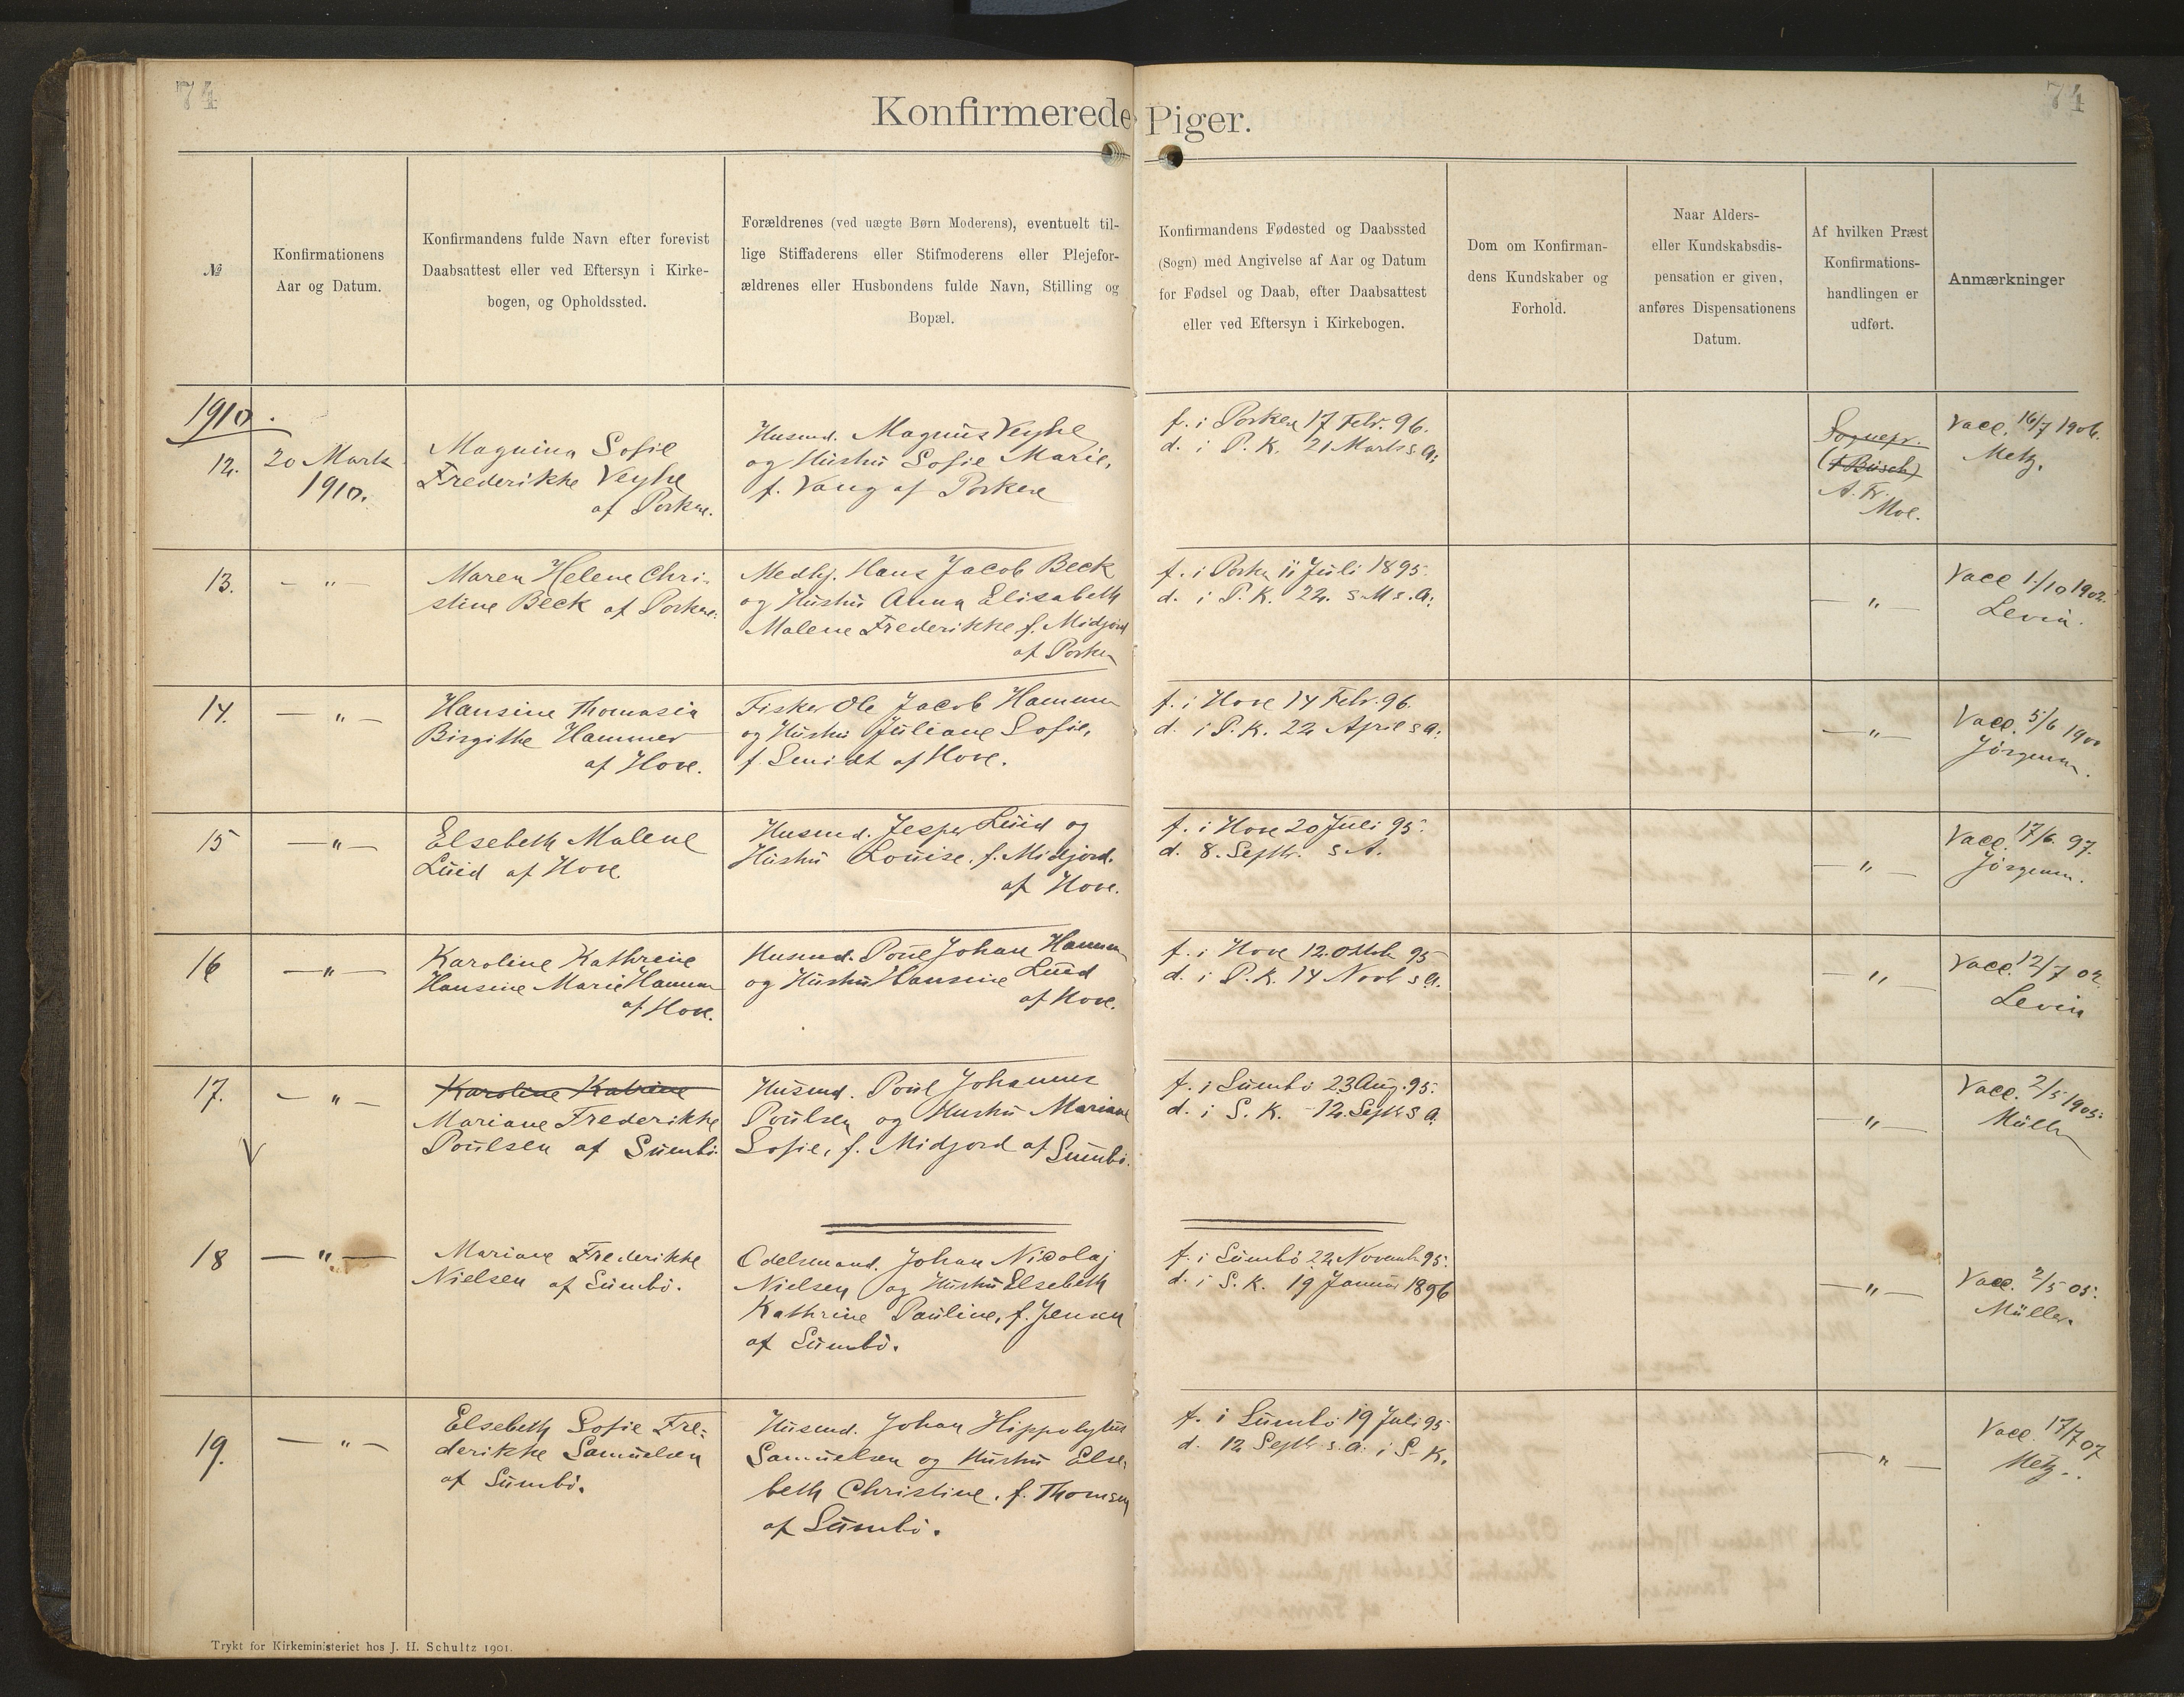 74
74
Konfirmerede Piger.
№
Konfirmationens
Aar og Datum.
Konfirmandens fulde Navn efter forevist
Daabsattest eller ved Eftersyn i Kirke-
bogen, og Opholdssted.
Forældrenes (ved uægte Børn Moderens), eventuelt til-
lige Stiffaderens eller Stifmoderens eller Plejefor-
ældrenes eller Husbondens fulde Navn, Stilling og
Bopæl.
Konfirmandens Fødested og Daabssted
(Sogn) med Angivelse af Aar og Datum
for Fødsel og Daab, efter Daabsattest
eller ved Eftersyn i Kirkebogen.
Dom om Konfirman-
dens Kundskaber og
Forhold.
Naar Alders-
eller Kundskabsdis-
pensation er given,
anføres Dispensationens
Datum.
Af hvilken Præst
Konfirmations-
handlingen er
udført.
Anmærkninger
1910.
12.
20 Marts
1910.
Magnina Sofie
Frederikke Veyhe
af Porkere.
Husmd. Magnus Veyhe
og Hustru Sofie Marie,
f. Vang af Porkere
f. i Porkere 17 Febr. 96.
d. i P. K. 21 Marts s. A.
Sognepr.
(F Busch)
A. Fr.
Moe.
Vacc. 16/7 1906.
Metz.
13.
— " —
Maren Helene Chri-
stine Beck af Porkere.
Medhj. Hans Jacob Beck
og Hustru Anna Elisabeth
Malene Frederikke f. Midjord
af Porkere
f. i Porkere 11 Juli 1895.
d. i P. K. 22. s. M. s. A.
— " —
Vacc 1/10 1902.
Levin.
14.
— " —
Hansine Thomasia
Birgithe Hammer
af Hove.
Fisker Ole Jacob Hammer
og Hustru Juliane Sofie,
f. Smidt af Hove.
f. i Hove 14 Febr. 96.
d. i P. K. 22 April s A.
— " —
Vacc. 5/6 1900
Jörgensen.
15
— " —
Elsebeth Malene
Luid af Hove.
Husmd. Jesper Luid og
Hustru Louise, f. Midjord.
af Hove.
f. i Hove 20 Juli 95.
d. 8. Septbr. s A.
— " —
Vacc. 17/6. 97.
Jörgensen.
16
— " —
Karoline Kathrine
Hansine Marie Hammer
af Hove.
Husmd. Poul Johan Hammer
og Hustru Hansine Luid
af Hove.
f. i Hove 12. Oktob 95
d. i P. K. 14 Novb s A.
— " —
Vacc. 12/7 02.
Levin
17.
— " —
Karoline Katrine
Mariane Frederikke
Poulsen af Sumbö.
Husmd. Poul Johannes
Poulsen og Hustru Mariane
Sofie, f. Midjord af Sumbö.
f. i Sumbö 23 Aug. 95.
d. i S. K. 12. Septb s A.
— " —
Vacc. 2/5 1905.
Müller
18
— " —
Mariane Frederikke
Nielsen af Sumbö.
Odelsmand. Johan Nicolaj
Nielsen og Hustru Elsebeth
Kathrine Pauline, f. Jensen
af Sumbö.
f. i Sumbö 22 Novemb 95.
d. i S. K. 19 Januar 1896
— " —
Vacc. 2/5 05.
Müller.
19.
— " —
Elsebeth Sofie Fre-
derikke Samuelsen
af Sumbö.
Husmd. Johan Hippolytus
Samuelsen og Hustru Else-
beth Christine, f. Thomsen
af Sumbö.
f. i Sumbö 19 Juli 95
d. 12 Septb s. A. i S. K.
— " —
Vacc. 17/7 07
Metz.
Trykt for Kirkeministeriet hos J. H. Schultz 1901.